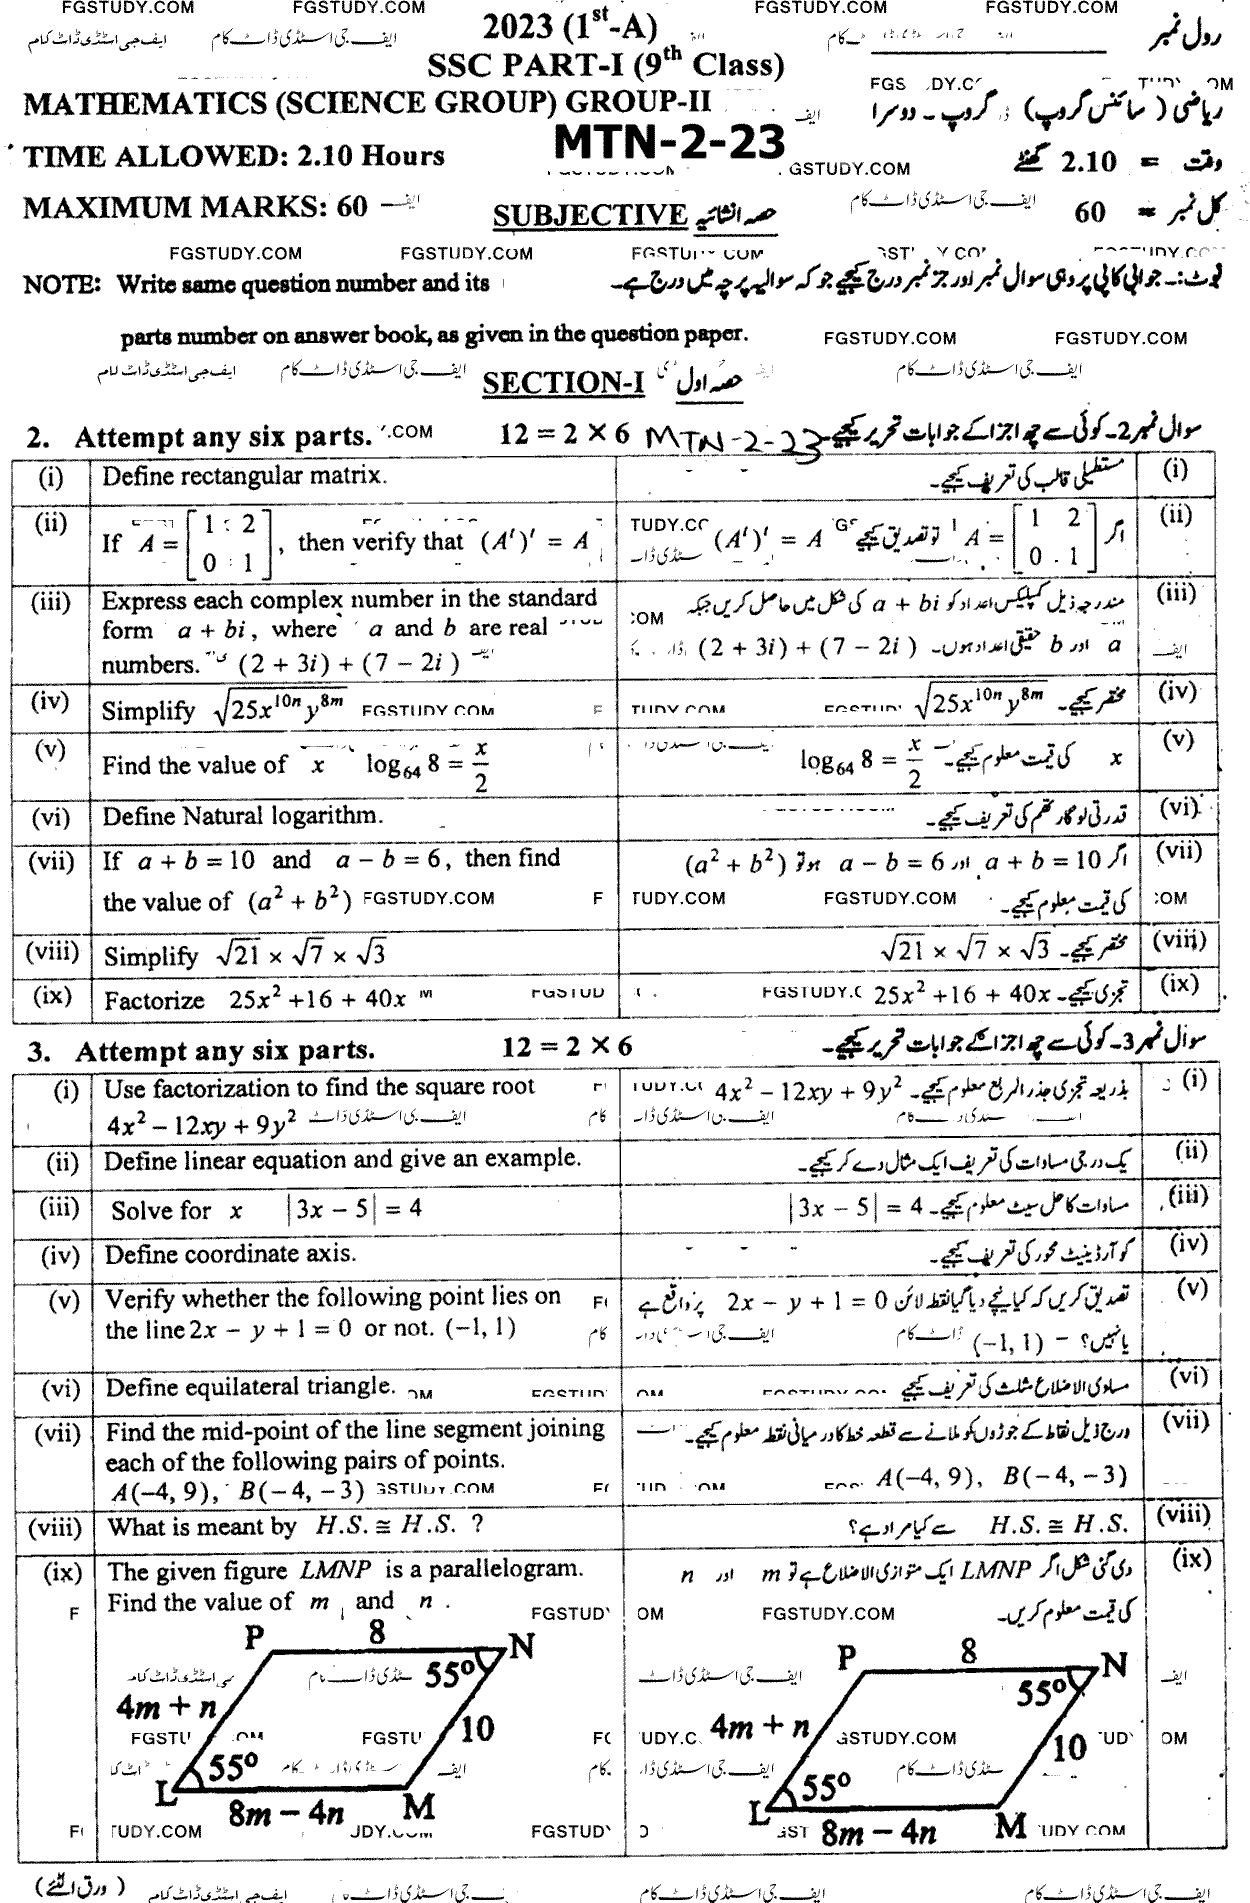 FGSTUDY.COM FGSTUDY.COM FGSTUDY.COM FGSTUDY.COM
2023 (1st-A)
رول نمبر
ایف جی اسٹڈی ڈاٹ کام ایف جی اسٹڈی ڈاٹ کام
SSC PART-I (9th Class)
MATHEMATICS (SCIENCE GROUP) GROUP-II
ریاضی (سائنس گروپ) گروپ ۔ دوسرا
MTN-2-23
TIME ALLOWED: 2.10 Hours
وقت = 2.10 گھنٹے
MAXIMUM MARKS: 60
SUBJECTIVE حصہ انشائیہ
کل نمبر = 60
FGSTUDY.COM FGSTUDY.COM
NOTE: Write same question number and its
نوٹ:۔ جوابی کاپی پر وہی سوال نمبر اور جز نمبر درج کیجیے جو کہ سوالیہ پرچہ میں درج ہے۔
parts number on answer book, as given in the question paper.
FGSTUDY.COM FGSTUDY.COM
SECTION-I حصہ اول
2. Attempt any six parts. 12 = 2 × 6 MTN-2-23 سوال نمبر 2۔ کوئی سے چھ اجزا کے جوابات تحریر کیجیے۔
(i) Define rectangular matrix. مستطیلی قالب کی تعریف کیجیے۔ (i)
(ii) If A = [1 2; 0 1], then verify that (A')' = A اگر A = [1 2; 0 1] تو تصدیق کیجیے (A')' = A (ii)
(iii) Express each complex number in the standard مندرجہ ذیل کمپلیکس اعداد کو a + bi کی شکل میں حاصل کریں جبکہ (iii)
form a + bi, where a and b are real
numbers. (2 + 3i) + (7 − 2i) a اور b حقیقی اعداد ہوں۔ (2 + 3i) + (7 − 2i)
(iv) Simplify √25x¹⁰ⁿy⁸ᵐ FGSTUDY.COM مختصر کیجیے۔ √25x¹⁰ⁿy⁸ᵐ (iv)
(v) Find the value of x log₆₄ 8 = x/2 x کی قیمت معلوم کیجیے۔ log₆₄ 8 = x/2 (v)
(vi) Define Natural logarithm. قدرتی لوگارتھم کی تعریف کیجیے۔ (vi)
(vii) If a + b = 10 and a − b = 6, then find اگر a + b = 10 اور a − b = 6 ہو تو (a² + b²) (vii)
the value of (a² + b²) FGSTUDY.COM FGSTUDY.COM کی قیمت معلوم کیجیے۔
(viii) Simplify √21 × √7 × √3 مختصر کیجیے۔ √21 × √7 × √3 (viii)
(ix) Factorize 25x² +16 + 40x تجزی کیجیے۔ 25x² +16 + 40x (ix)
3. Attempt any six parts. 12 = 2 × 6 سوال نمبر 3۔ کوئی سے چھ اجزا کے جوابات تحریر کیجیے۔
(i) Use factorization to find the square root بذریعہ تجزی جذر المربع معلوم کیجیے۔ 4x² − 12xy + 9y² (i)
4x² − 12xy + 9y²
(ii) Define linear equation and give an example. یک درجی مساوات کی تعریف ایک مثال دے کر کیجیے۔ (ii)
(iii) Solve for x |3x − 5| = 4 مساوات کا حل سیٹ معلوم کیجیے۔ |3x − 5| = 4 (iii)
(iv) Define coordinate axis. کوآرڈینیٹ محور کی تعریف کیجیے۔ (iv)
(v) Verify whether the following point lies on تصدیق کریں کہ کیا نیچے دیا گیا نقطہ لائن 2x − y + 1 = 0 پر واقع ہے (v)
the line 2x − y + 1 = 0 or not. (−1, 1) یا نہیں؟ − (−1, 1)
(vi) Define equilateral triangle. مساوی الاضلاع مثلث کی تعریف کیجیے (vi)
(vii) Find the mid-point of the line segment joining درج ذیل نقاط کے جوڑوں کو ملانے سے قطعہ خط کا درمیانی نقطہ معلوم کیجیے۔ (vii)
each of the following pairs of points.
A(−4, 9), B(−4, −3) A(−4, 9), B(−4, −3)
(viii) What is meant by H.S. ≅ H.S. ? H.S. ≅ H.S. سے کیا مراد ہے؟ (viii)
(ix) The given figure LMNP is a parallelogram. دی گئی شکل اگر LMNP ایک متوازی الاضلاع ہے تو m اور n (ix)
Find the value of m and n. FGSTUDY.COM کی قیمت معلوم کریں۔
P 8 N P 8 N
55° 55°
4m + n 10 4m + n 10
55° 55°
L 8m − 4n M L 8m − 4n M
(ورق الٹئے)